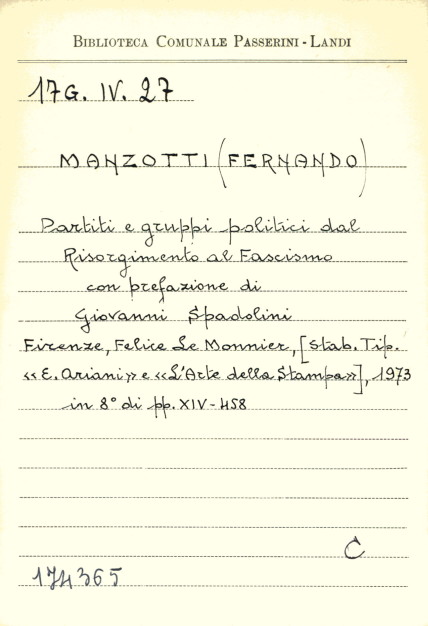 BIBLIOTECA COMUNALE PASSERINI - LANDI
17G. IV. 27
MANZOTTI (FERNANDO)
Partiti e gruppi politici dal
Risorgimento al Fascismo
con prefazione di
Giovanni Spadolini
Firenze, Felice Le Monnier, [Stab. Tip.
«E. Ariani» e «L'Arte della Stampa»], 1973
in 8° di pp. XIV - 458
C
174365